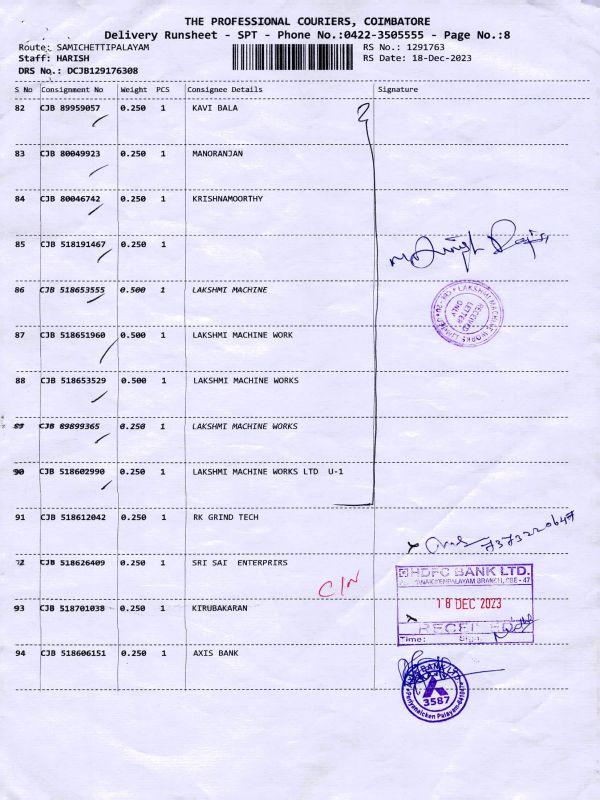 THE PROFESSIONAL COURIERS, COIMBATORE
Delivery Runsheet - SPT - Phone No.:0422-3505555 - Page No.:8
Route: SAMICHETTIPALAYAM RS No.: 1291763
Staff: HARISH RS Date: 18-Dec-2023
DRS No.: DCJB129176308
S No Consignment No Weight PCS Consignee Details Signature
82 CJB 89959057 0.250 1 KAVI BALA
83 CJB 80049923 0.250 1 MANORANJAN
84 CJB 80046742 0.250 1 KRISHNAMOORTHY
85 CJB 518191467 0.250 1
86 CJB 518653555 0.500 1 LAKSHMI MACHINE
LAKSHMI MACHINE WORKS LIMITED
RECEIVED
LETTER
ONLY
87 CJB 518651960 0.500 1 LAKSHMI MACHINE WORK
88 CJB 518653529 0.500 1 LAKSHMI MACHINE WORKS
89 CJB 89899365 0.250 1 LAKSHMI MACHINE WORKS
90 CJB 518602990 0.250 1 LAKSHMI MACHINE WORKS LTD U-1
91 CJB 518612042 0.250 1 RK GRIND TECH
92 CJB 518626409 0.250 1 SRI SAI ENTERPRIRS
C/N
HDFC BANK LTD.
BRANCH, CBE - 47
18 DEC 2023
RECEIVED
Time: Sign
93 CJB 518701038 0.250 1 KIRUBAKARAN
94 CJB 518606151 0.250 1 AXIS BANK
AXIS BANK LTD
3587